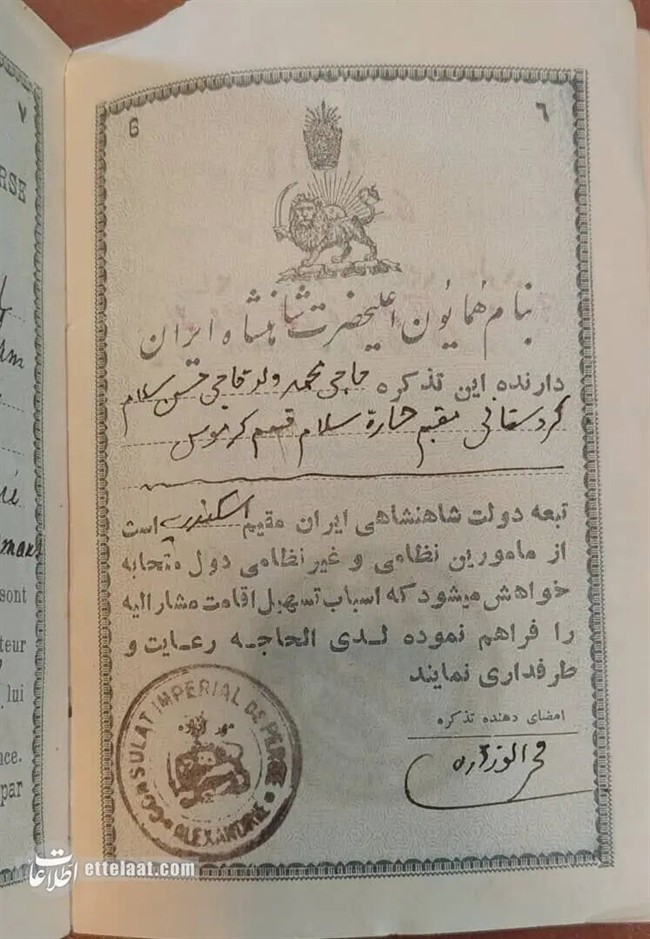 ٧
RSE
sont
teur
lui
nce.
par
6
٦
بنام همایون اعلیحضرت شاهنشاه ایران
دارنده این تذکره حاجی محمد ولد حاجی حسن سلام
کردستانی مقیم حارة سلام قسم کرموس
تبعه دولت شاهنشاهی ایران مقیم اسکندریه است
از مامورین نظامی و غیر نظامی دول متحابه
خواهش میشود که اسباب تسهیل اقامت مشارالیه
را فراهم نموده لدی الحاجه رعایت و
طرفداری نمایند
امضای دهنده تذکره
SULAT IMPERIAL DE PERSE
ALEXANDRIE
اطلاعات ettelaat.com